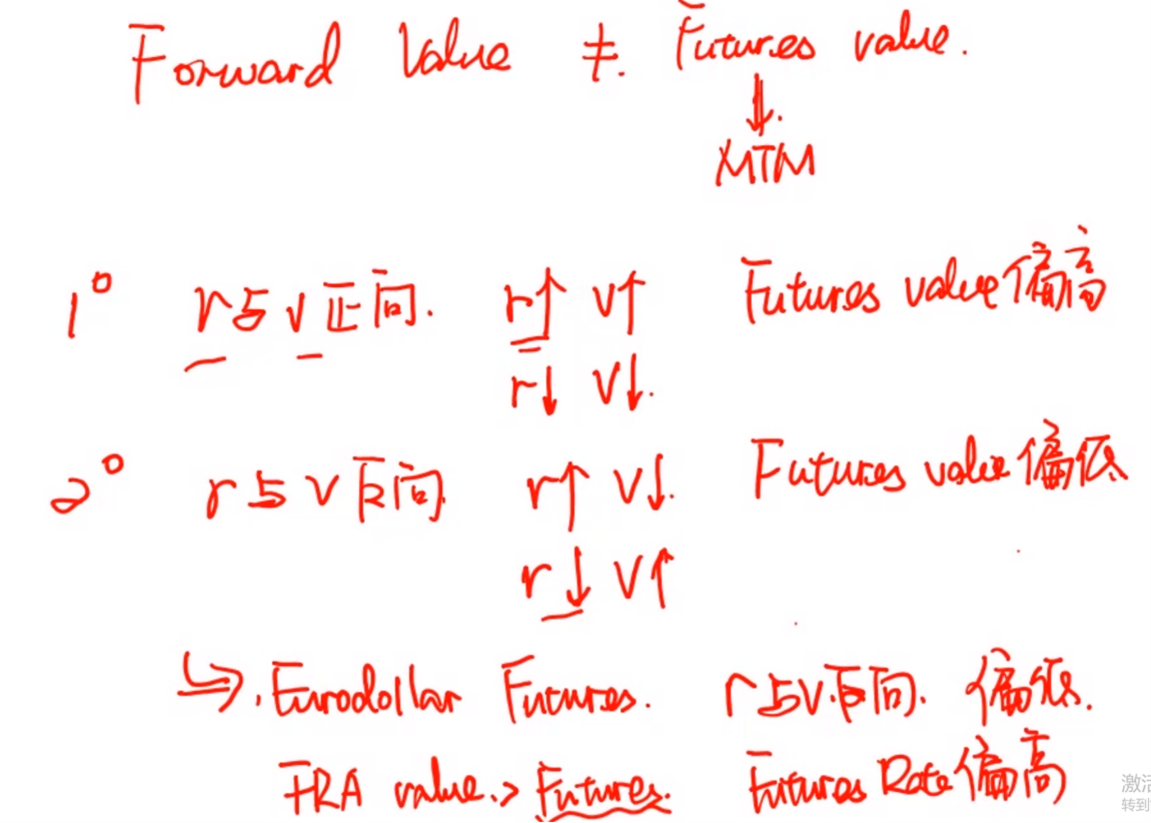 Forward Value ≠. Futures value.
↓.
MTM
1° r与v正向. r↑ v↑ Futures value偏高
r↓ v↓.
2° r与v反向. r↑ v↓. Futures value偏低
r↓ v↑
↳. Eurodollar Futures. r与v.反向. 偏低.
FRA value.> Futures. Futures Rate偏高
激活
转到